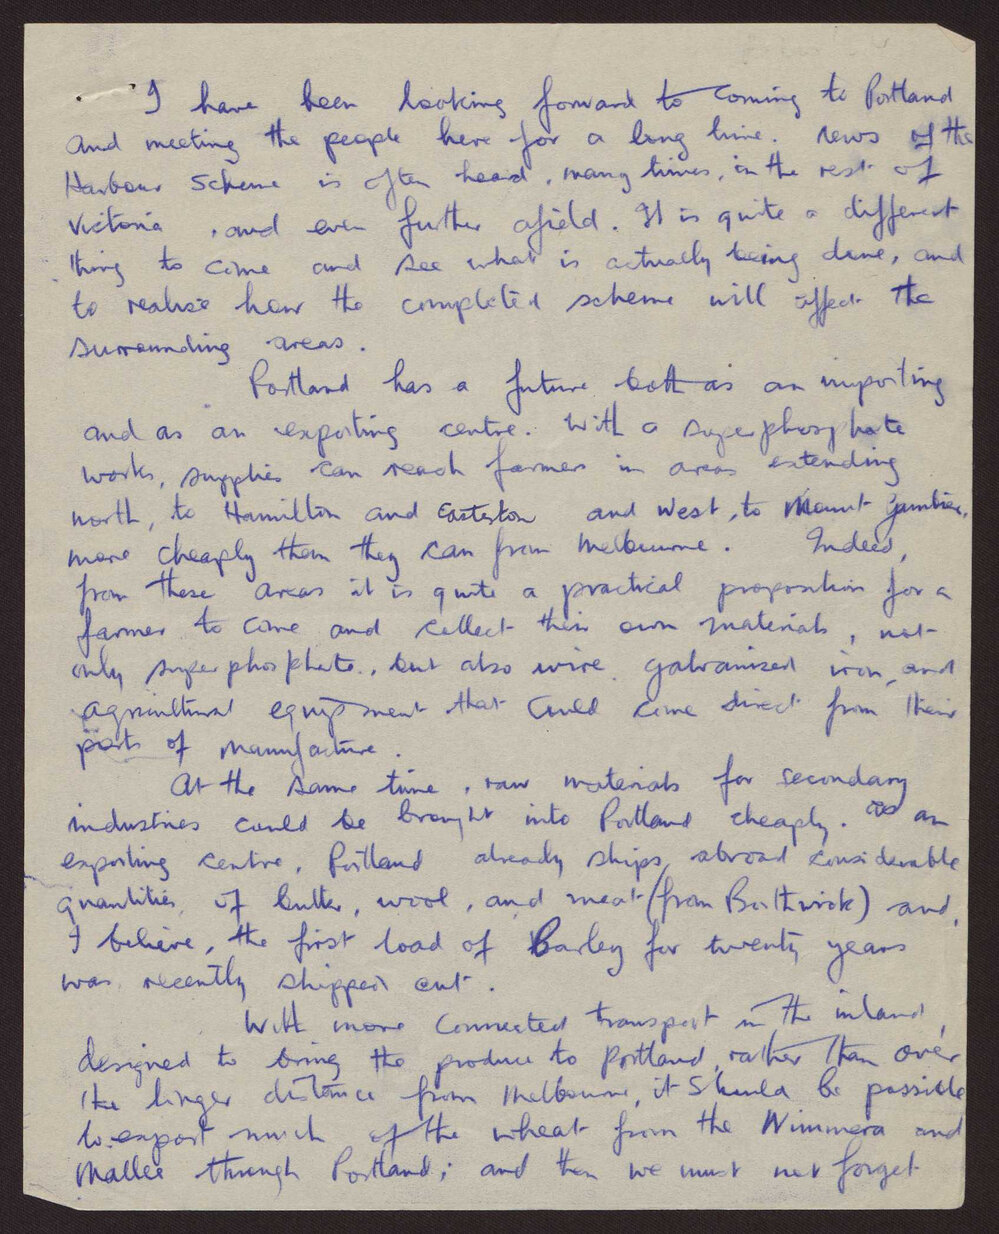 I have been looking forward to coming to Portland
and meeting the people here for a long time. News of the
Harbour Scheme is often heard, many times, in the rest of
Victoria, and even further afield. It is quite a different
thing to come and see what is actually being done, and
to realise how the completed scheme will affect the
surrounding areas.
Portland has a future both as an importing
and as an exporting centre. With a superphosphate
works, supplies can reach farmers in areas extending
north, to Hamilton and and west, to Mount Gambier,
more cheaply than they can from Melbourne. Indeed,
from these areas it is quite a practical proposition for a
farmer to come and collect their own materials, not
only superphosphate, but also wire, galvanised iron, and
agricultural equipment that could come direct from their
ports of manufacture.
At the same time, raw materials for secondary
industries could be brought into Portland cheaply. As an
exporting centre, Portland already ships abroad considerable
quantities of butter, wool, and meat (from Borthwick) and,
I believe, the first load of Barley for twenty years
was recently shipped out.
With more connected transport in the inland,
designed to bring the produce to Portland, rather than over
the longer distance from Melbourne, it should be possible
to export much of the wheat from the Wimmera and
Mallee through Portland; and then we must not forget